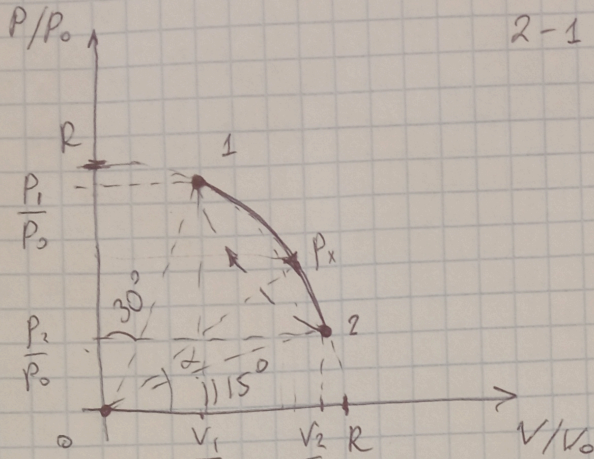 P/P₀
2-1
R
1
P₁/P₀
30°
Pₓ
P₂/P₀
2
α
15°
0
V₁
V₂
R
V/V₀